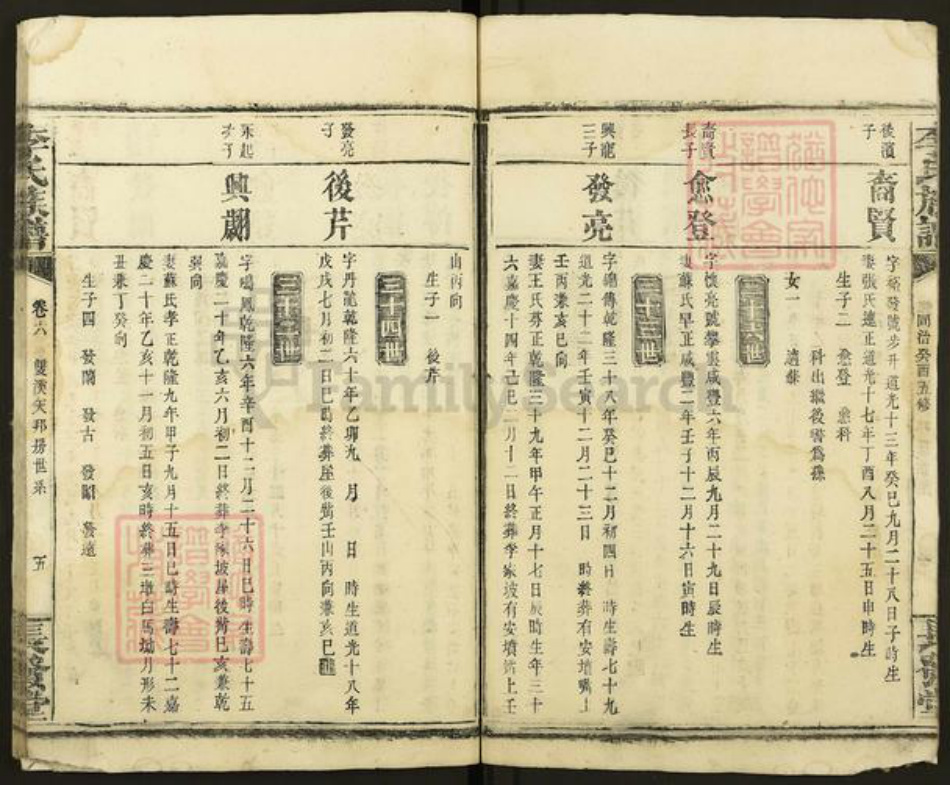 李氏族譜
同治癸酉五修
後濱
子
裔賢
字 發號步升道光十三年癸巳九月二十八日子時生
妻張氏蓮正道光十七年丁酉八月二十五日申時生
生子二 愈登 愈科
科出繼後 為孫
女一 適蘇
三十五世
裔賢
長子
愈登
字懷亮號攀雲咸豐六年丙辰九月二十九日辰時生
妻蘇氏早正咸豐二年壬子十二月十六日寅時生
三十三世
興龍
三子
發亮
字 傳乾隆三十八年癸巳十二月初四日 時生壽七十九
道光二十二年壬寅十二月二十三日 時終葬有安墳嘴上
壬丙兼亥巳向
妻王氏芬正乾隆三十九年甲午正月十七日辰時生年三十
六嘉慶十四年己巳二月十二日終葬李家坡有安墳 上壬
山丙向
生子一 後芹
三十四世
發亮
子
後芹
字丹 乾隆六十年乙卯九 月 日 時生道光十八年
戊戌七月初二日巳時終葬屋後 壬山丙向兼亥巳
三十二世
永起
次子
興翽
字鳴鳳乾隆六年辛酉十二月二十六日巳時生壽七十五
嘉慶二十年乙亥六月初二日終葬李家坡屋後 巳亥兼乾
巽向
妻蘇氏孝正乾隆九年甲子九月十五日巳時生壽七十二嘉
慶二十年乙亥十一月初五日亥時終葬三墩白馬坳月形未
丑兼丁癸向
生子四 發蘭 發古 發昭 發遠
李氏族譜
卷六 雙溪天邦房世系
五